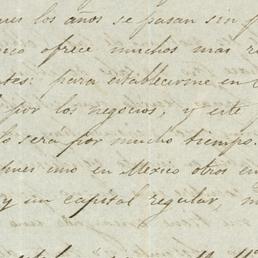 ues los años se pasan sin
ico ofrece muchos mas
para establecerme en
por los negocios, y este
lo sera por mucho tiempo.
pues uno en Mexico otros en
y un capital regular,